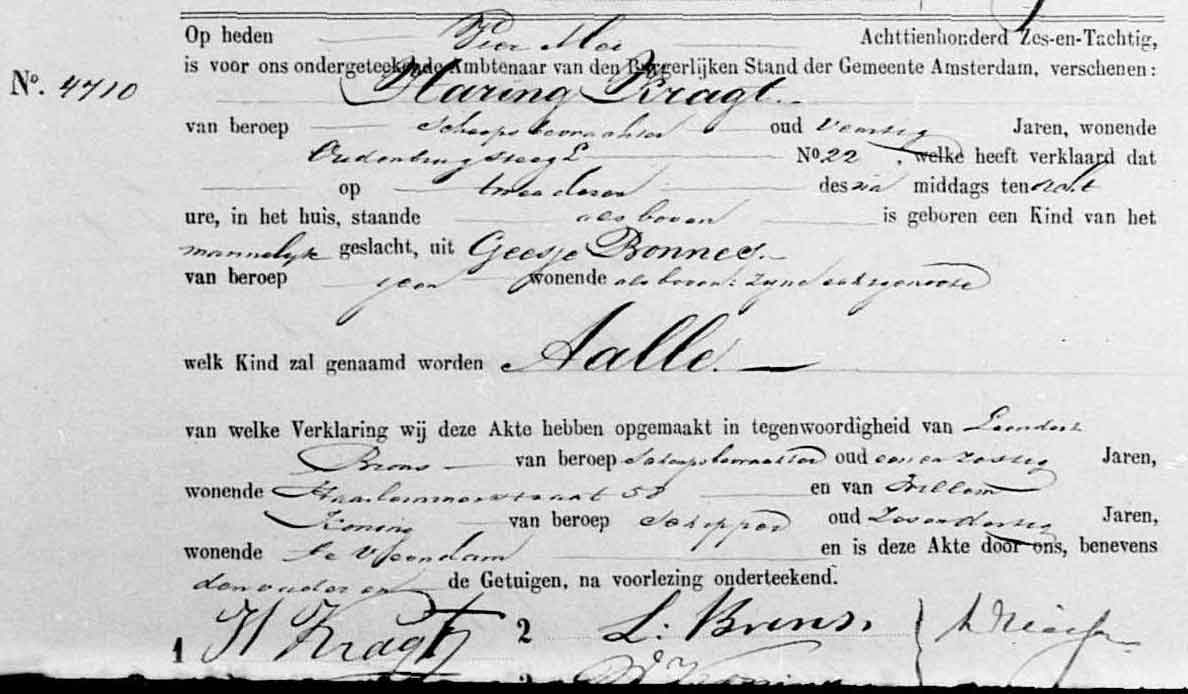 Op heden Vier Mei Achttienhonderd Zes-en-Tachtig,
is voor ons ondergeteekende Ambtenaar van den Burgerlijken Stand der Gemeente Amsterdam, verschenen:
No. 4710 Haring Kragt
van beroep Scheepsbevrachter oud Veertig Jaren, wonende
Oudenbrugsteeg No. 22, welke heeft verklaard dat
op twee dezer des na middags ten acht
ure, in het huis, staande als boven is geboren een Kind van het
mannelijk geslacht, uit Geesje Bonnes.
van beroep geen wonende als boven: zijne echtgenoote
welk Kind zal genaamd worden Aalle.
van welke Verklaring wij deze Akte hebben opgemaakt in tegenwoordigheid van Leendert
Brons van beroep Scheepsbevrachter oud een en zestig Jaren,
wonende Haarlemmerstraat 58 en van Willem
Koning van beroep Schipper oud Zevendertig Jaren,
wonende te Veendam en is deze Akte door ons, benevens
den vader en de Getuigen, na voorlezing onderteekend.
1 H Kragt 2 L: Brons.
W Koning